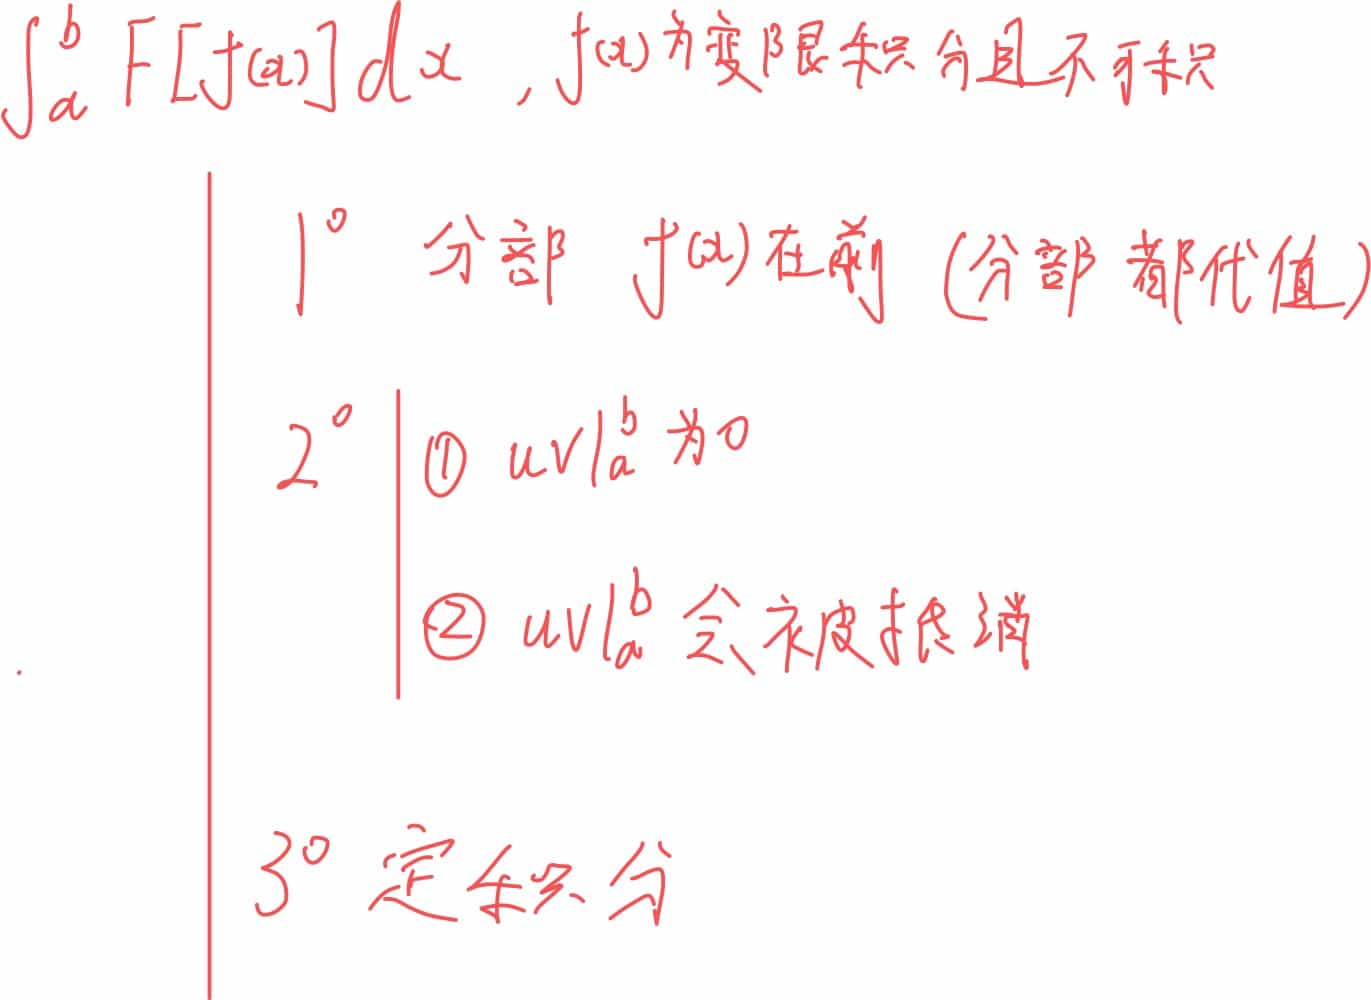 ∫_a^b F[f(x)]dx , f(x)为变限积分且不可积
1° 分部 f(x)在前 (分部都代值)
2° ① uv|_a^b 为0
② uv|_a^b 会被抵消
3° 定积分